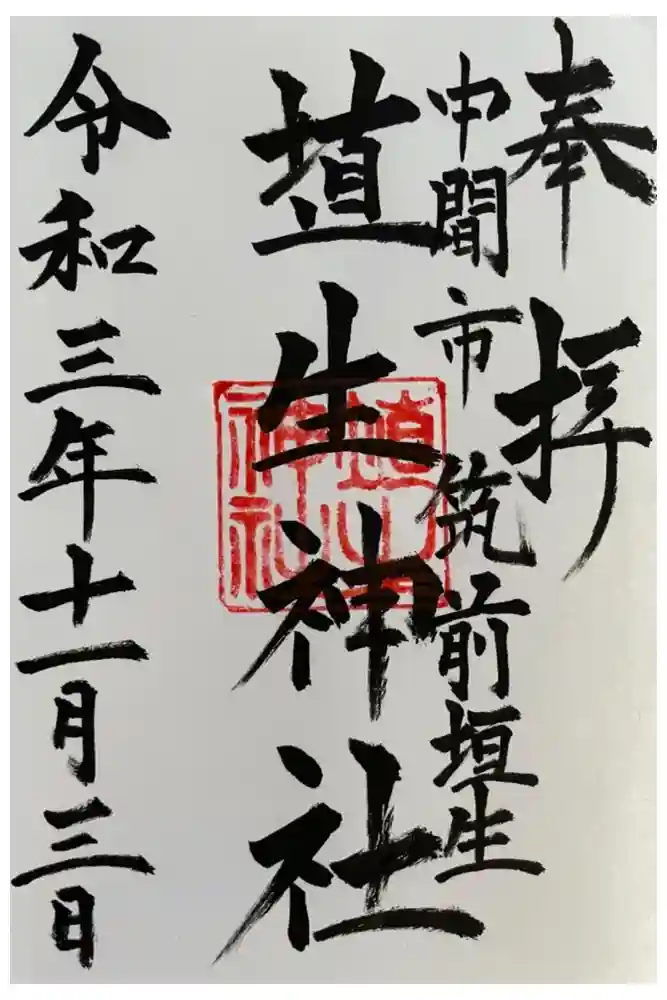 奉拝
中間市筑前垣生
埴生神社
埴生神社
令和三年十一月三日